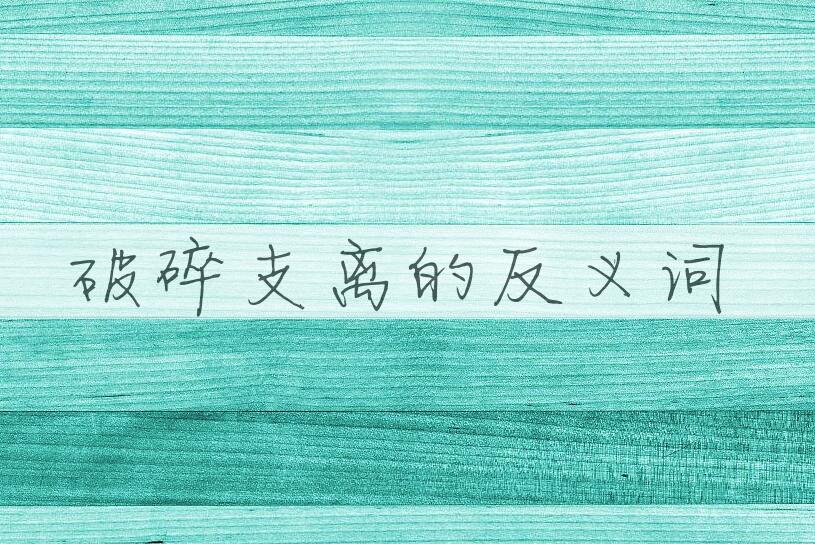 破碎支离的反义词